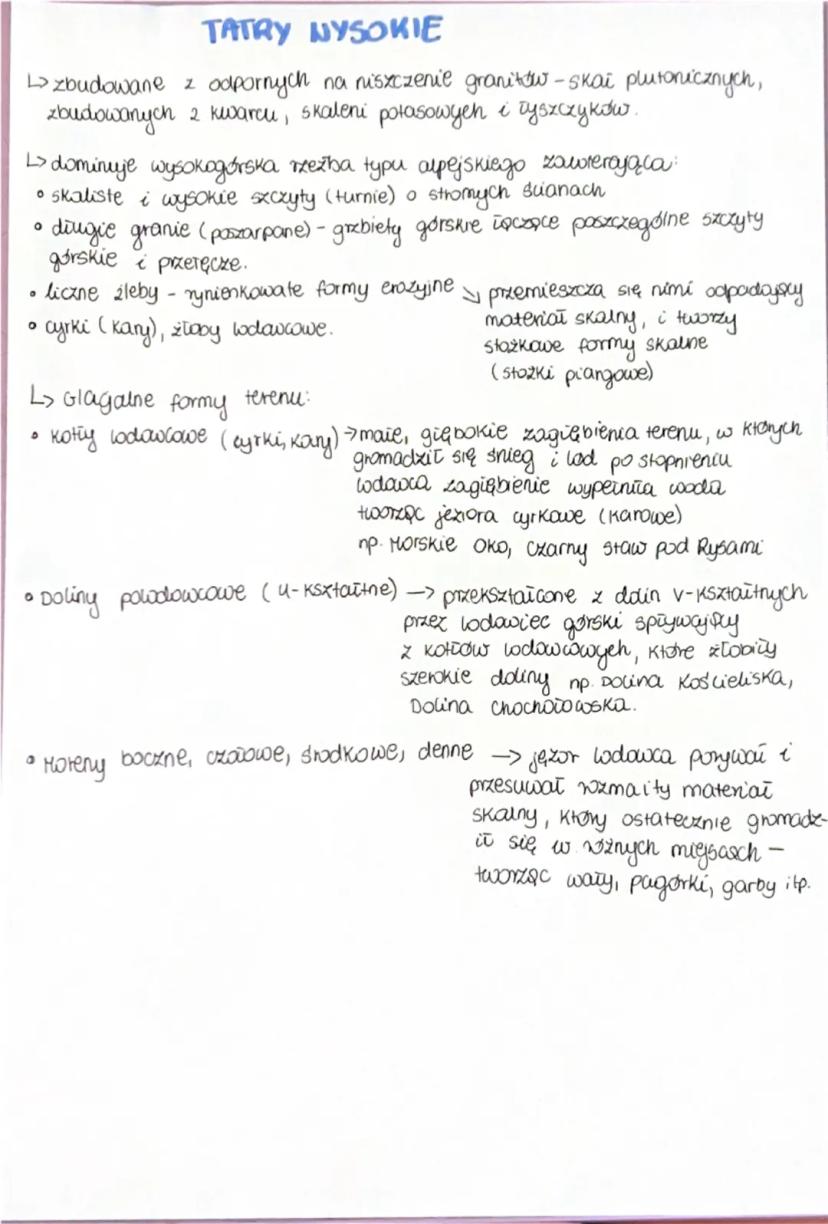 TATRY WYSOKIE
↳ zbudowane z odpornych na niszczenie granitów - skał plutonicznych,
zbudowanych z kwarcu, skaleni potasowych i łyszczyków.
↳ dominuje wysokogórska rzeźba typu alpejskiego zawierająca:
• skaliste i wysokie szczyty (turnie) o stromych ścianach
• długie granie (poszarpane) - grzbiety górskie łączące poszczególne szczyty
górskie i przełęcze.
• liczne żleby - rynienkowate formy erozyjne ↘ przemieszcza się nimi odpadający
• cyrki (kary), żłoby lodowcowe. materiał skalny, i tworzy
stożkowe formy skalne
(stożki piargowe)
↳ Glagalne formy terenu:
• kotły lodowcowe (cyrki, kary) → małe, głębokie zagłębienia terenu, w których
gromadził się śnieg i lód po stopnieniu
lodowca zagłębienie wypełniła woda
tworząc jeziora cyrkowe (karowe)
np. Morskie Oko, Czarny staw pod Rysami
• Doliny polodowcowe (U-kształtne) → przekształcone z dolin V-kształtnych
przez lodowiec górski spływający
z kotłów lodowcowych, które żłobiły
szerokie doliny np. Dolina Kościeliska,
Dolina Chochołowska.
• Moreny boczne, czołowe, środkowe, denne → jęzor lodowca porywał i
przesuwał rozmaity materiał
skalny, który ostatecznie gromadz-
ił się w różnych miejsasch -
tworząc wały, pagórki, garby itp.